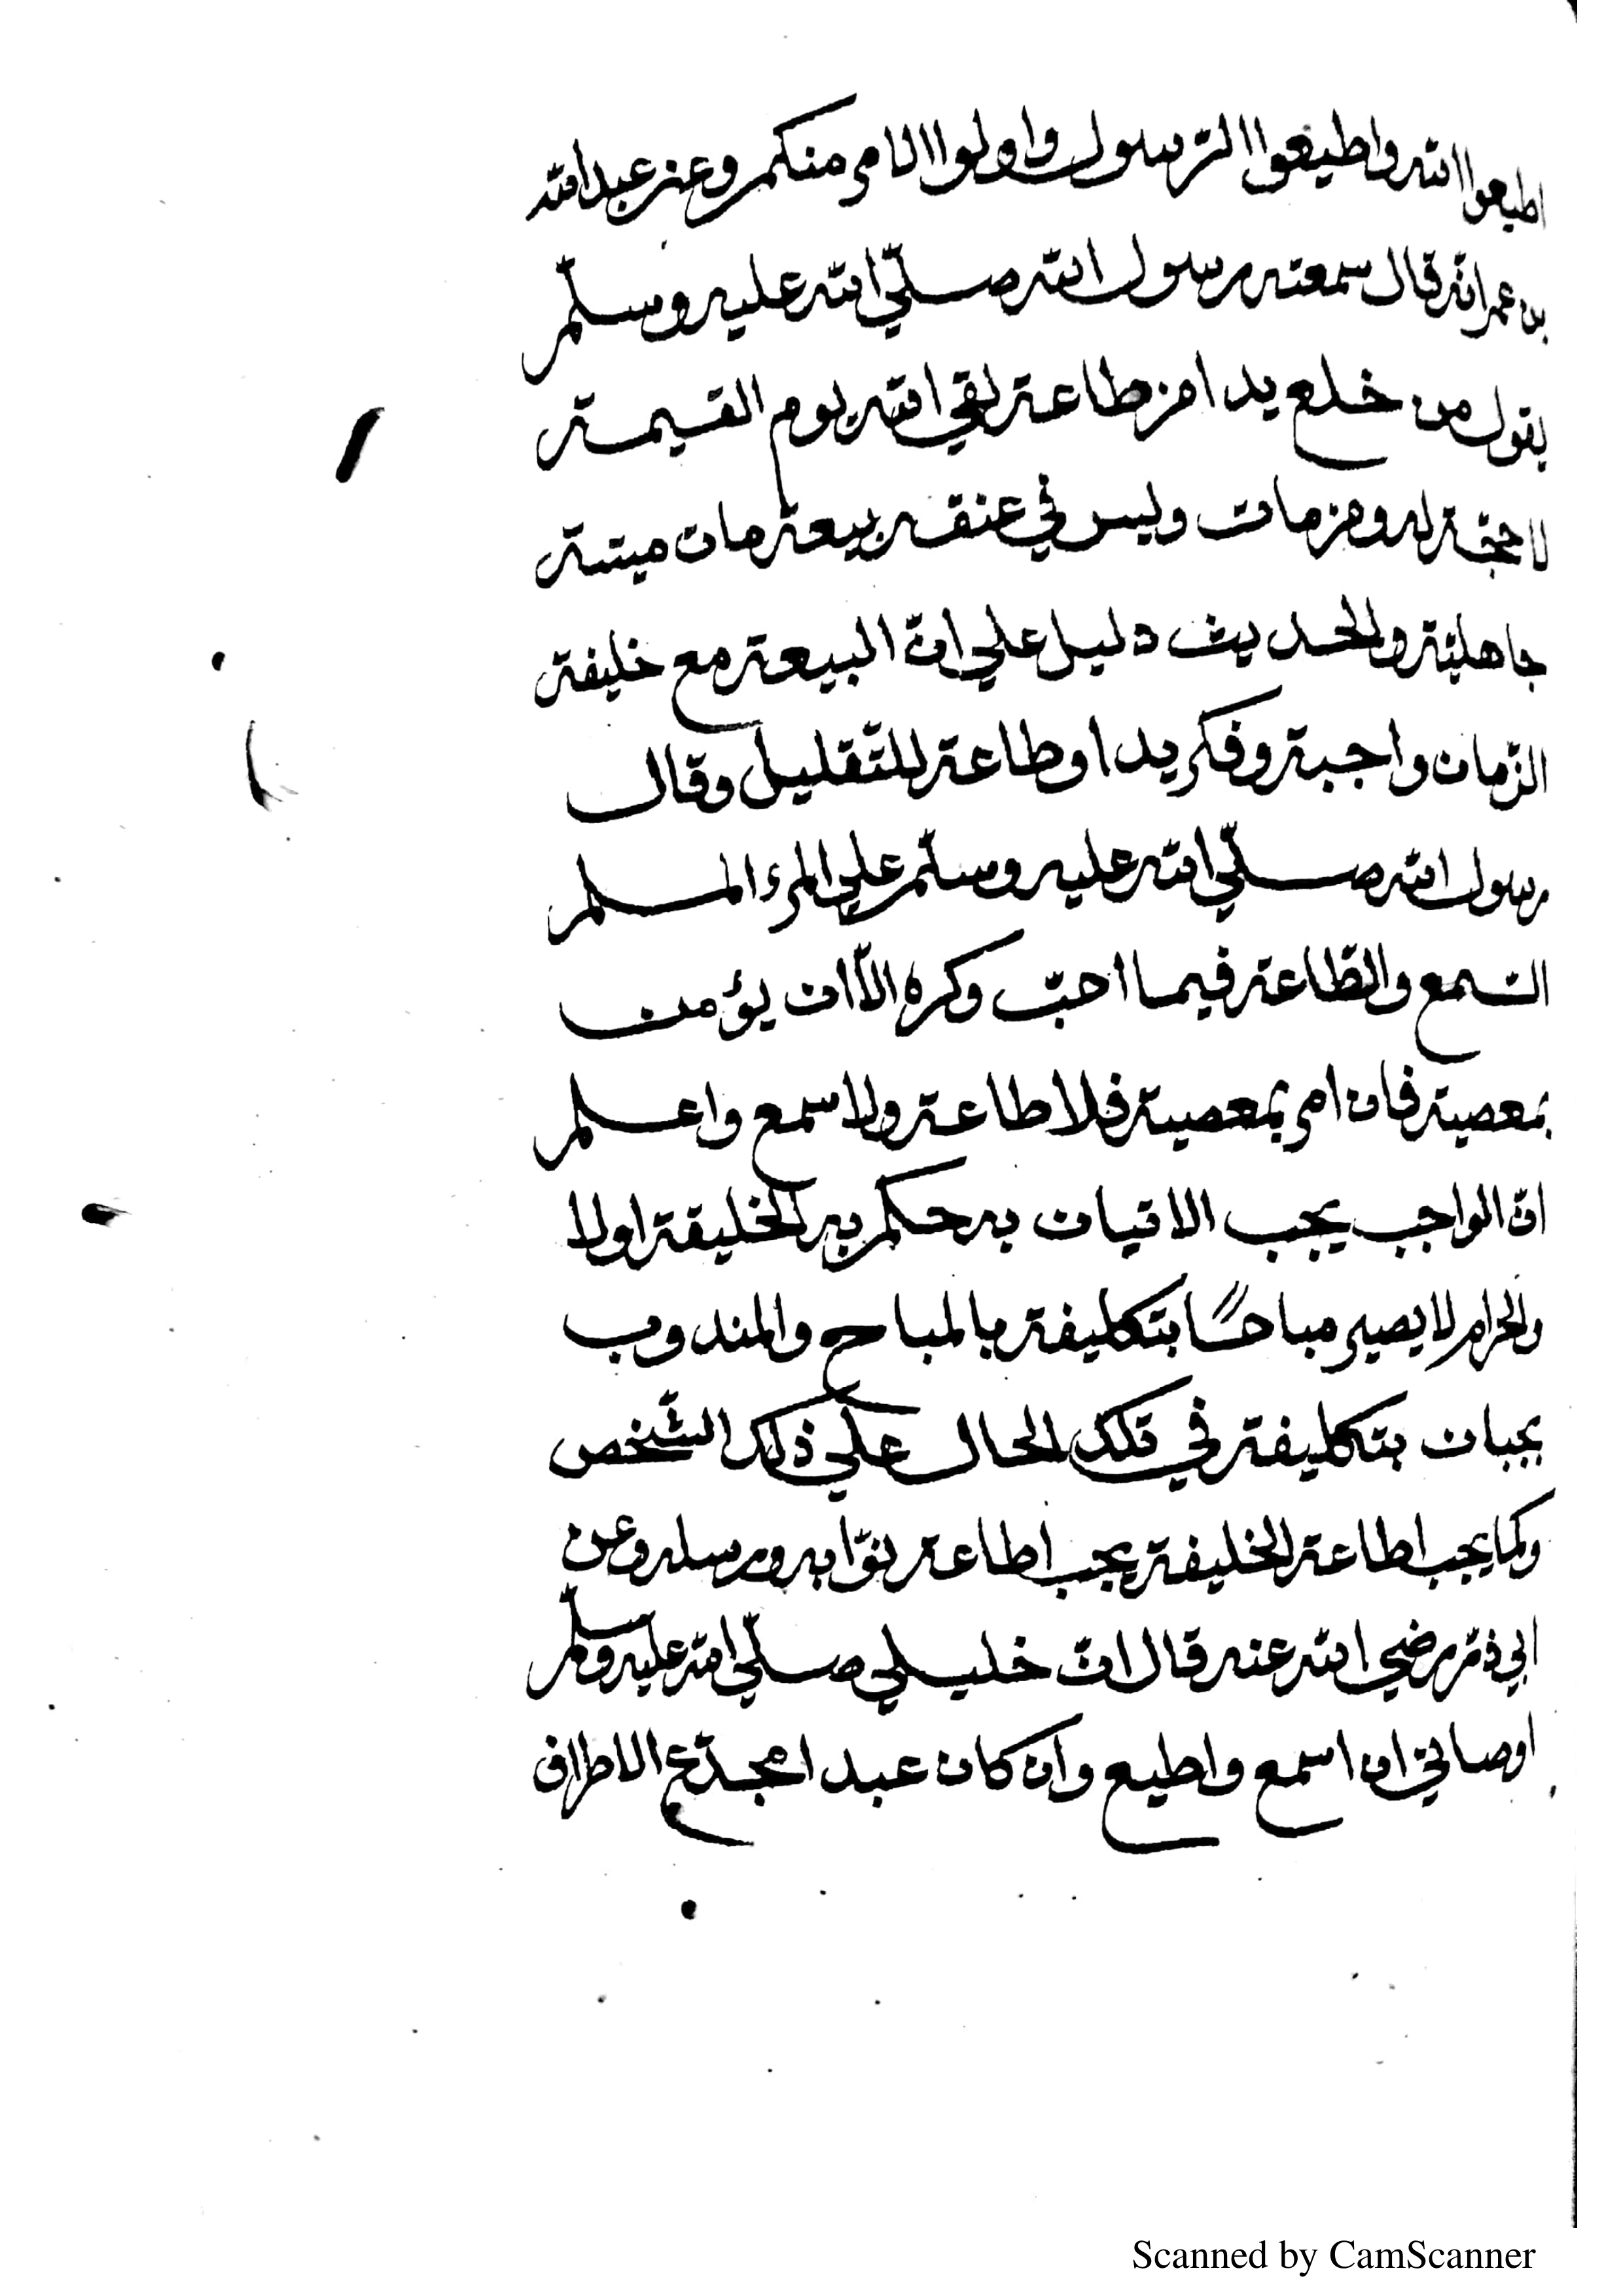 اطيعوا الله واطيعوا الرّسول واولوا الامر منكم وعن عبد الله
بن عمر انّه قال سمعته رسول الله صلّي الله عليه وسلّم
يقول من خلع يدا من طاعة لقي الله يوم القيمة
لا حجّة له ومن مات وليس في عنقه بيعة مات ميتة
جاهليّة والحديث دليل علي انّ البيعة مع خليفة
الزّمان واجبة وفكر يدا وطاعة للتّقليل وقال
رسول الله صلّي الله عليه وسلّم علي المرء المسلم
السّمع والطّاعة فيما احبّ وكره الّا ان يؤمن
بمعصية فان امر بمعصية فلا طاعة ولا سمع واعلم
انّ الواجب يجب الاتيان به حكم به الخليفة اولا
والحرام لا يصير مباحًا بتكليفة بالمباح والمندوب
يجبان بتكليفة في تلك الحال علي ذلك الشّخص
وكما يجب اطاعة الخليفة يجب اطاعة نوّابه ورسله وعن
ابي ذرّ رضي الله عنه قال انّ خليلي صلّي الله عليه وسلّم
اوصاني ان اسمع واطيع وان كان عبدا مجدّع الاطراف
Scanned by CamScanner